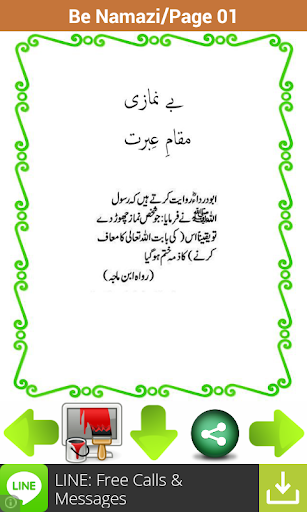 Be Namazi/Page 01
بے نمازی
مقامِ عِبرت
ابودرداءؓ روایت کرتے ہیں کہ رسول
اللہ ﷺ نے فرمایا: جو شخص نماز چھوڑ دے
تو یقیناً اس (کی بابت اللہ تعالیٰ کا معاف
کرنے) کا ذمہ ختم ہو گیا
(رواہ ابن ماجہ)
LINE
LINE: Free Calls &
Messages